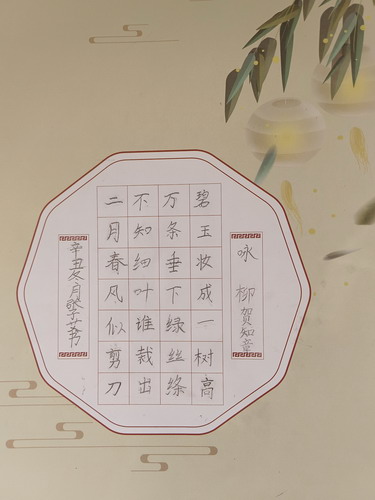 咏柳 贺知章
碧玉妆成一树高
万条垂下绿丝绦
不知细叶谁裁出
二月春风似剪刀
辛丑冬月